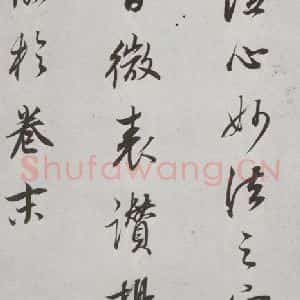 心妙法之
微表讚揚
於卷末
Shufawang.CN